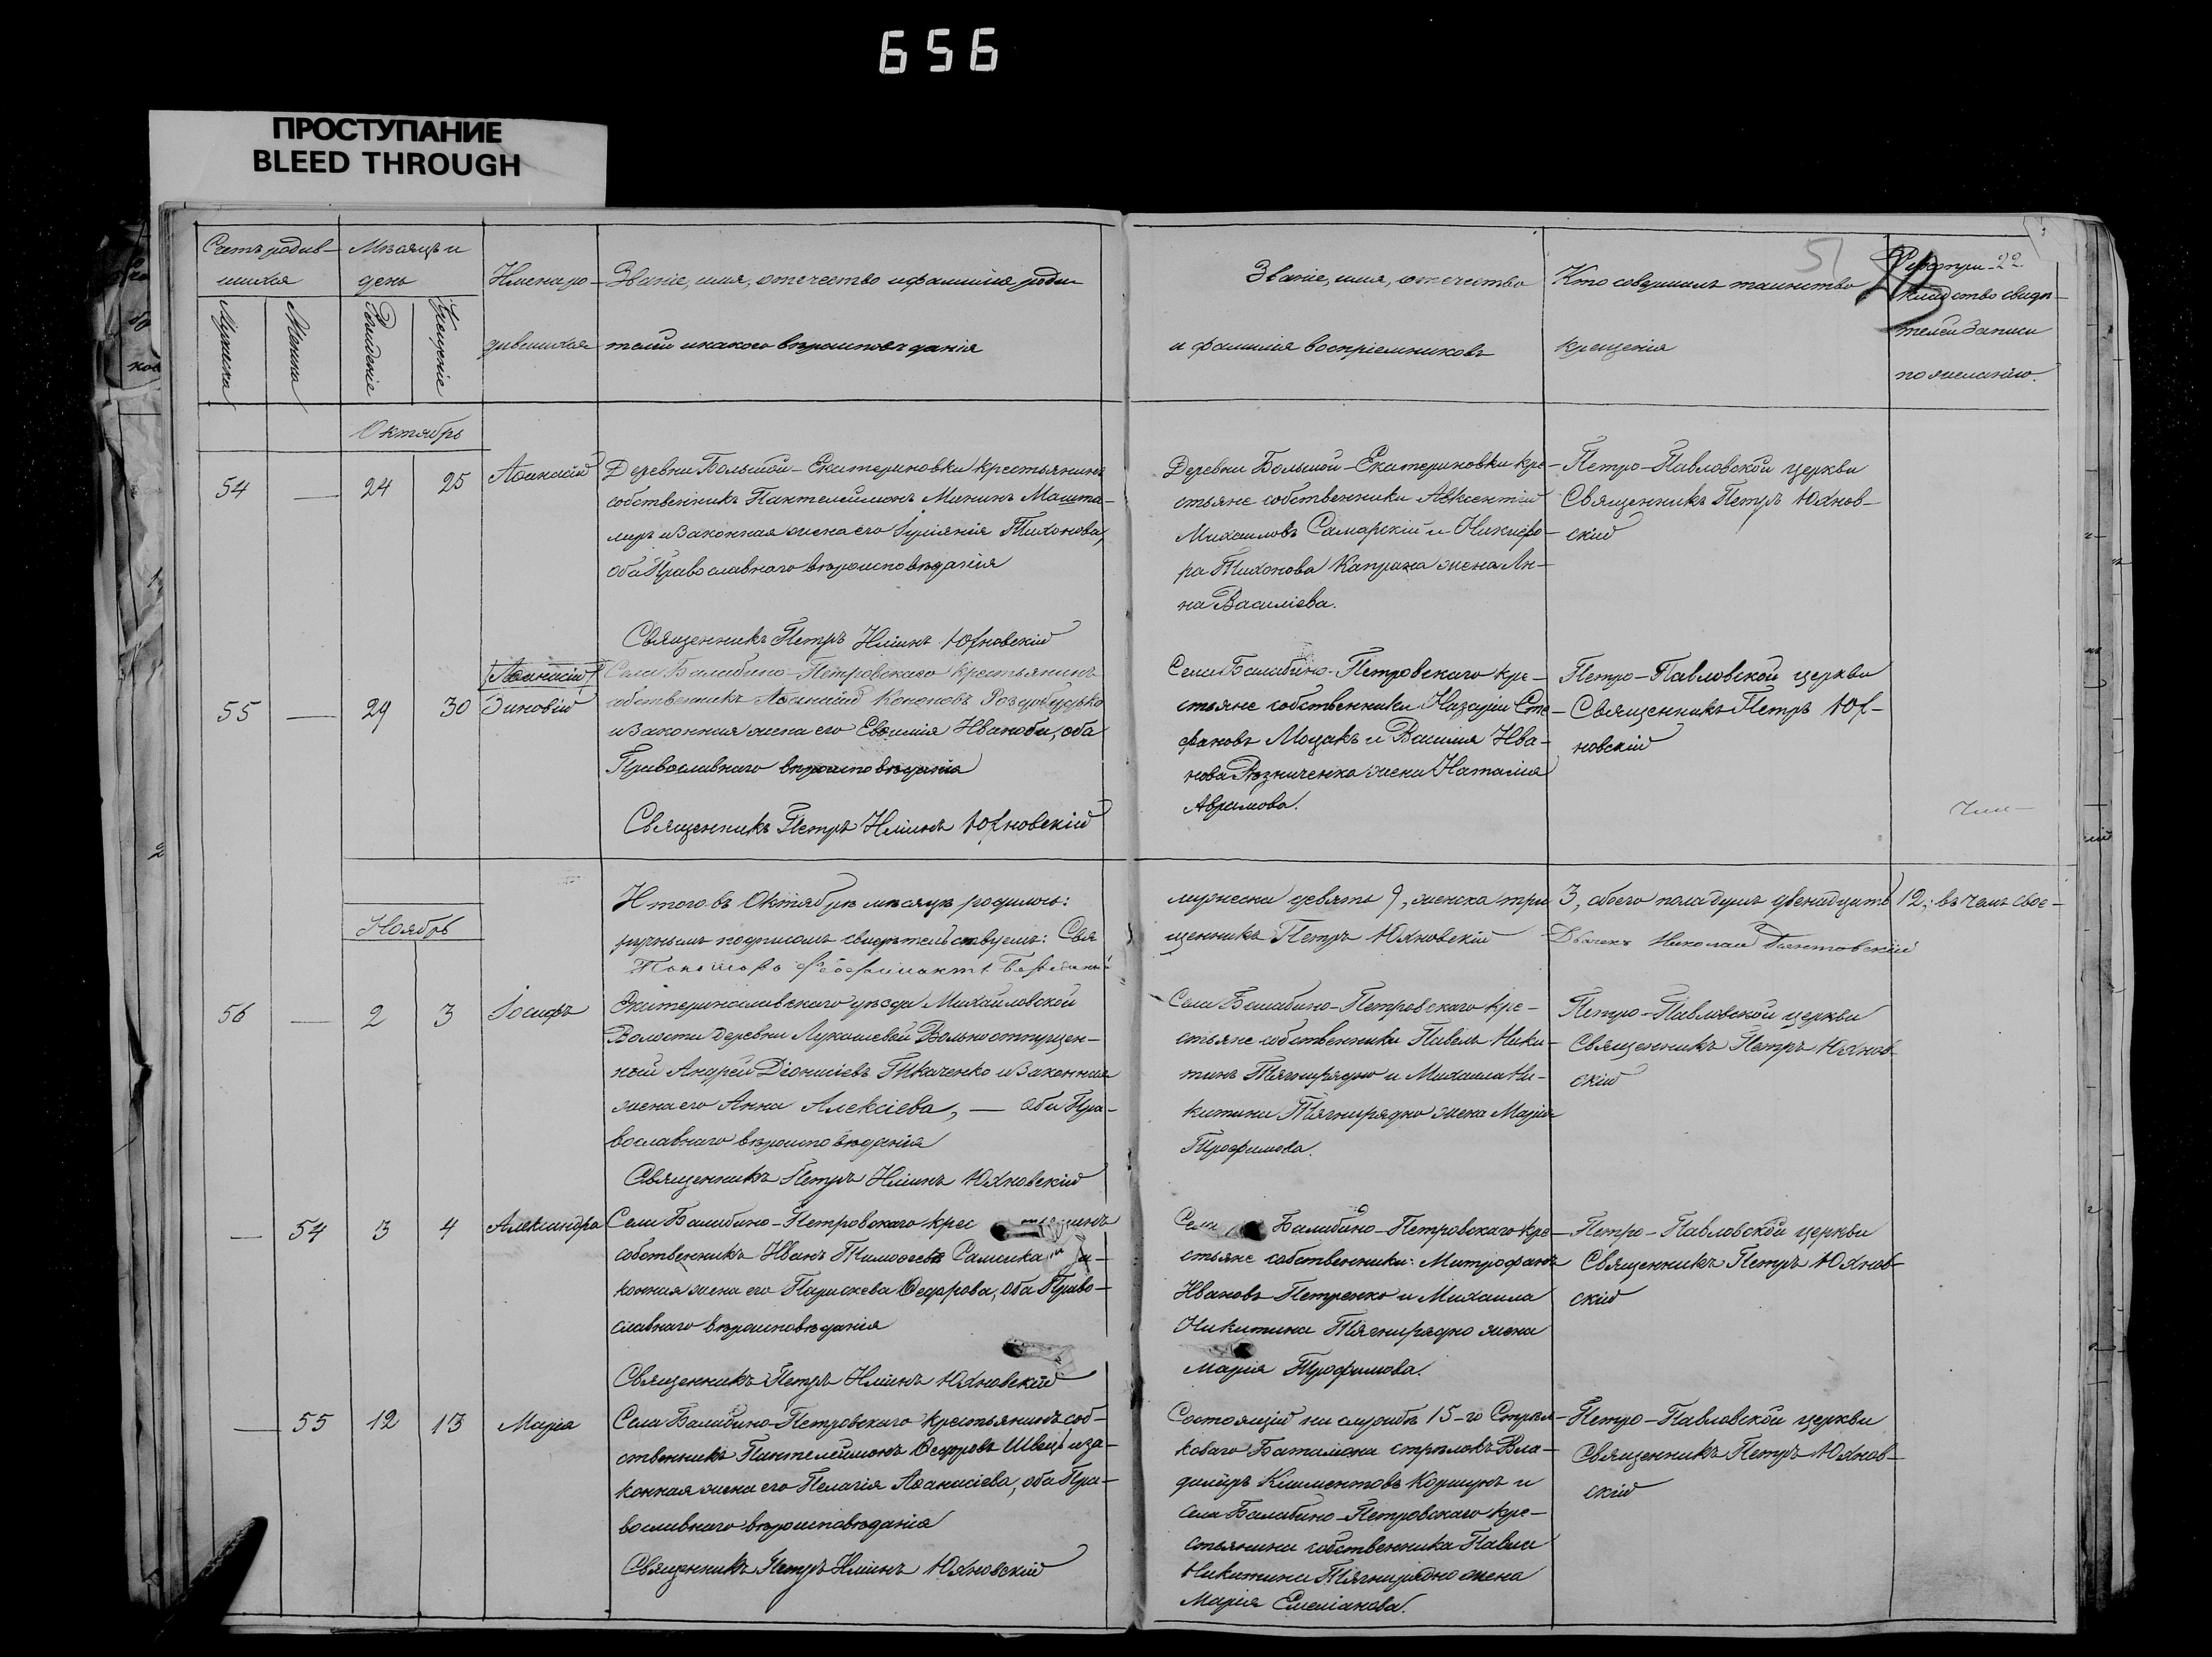 656
ПРОСТУПАНИЕ
BLEED THROUGH
Счетъ родив-
шихся
Мѣсяцъ и
день
Имена ро-
дившихся
Званіе, имя, отечество и фамилія роди-
телей и какого вѣроисповѣданія
Мужеска
Женска
Рожденіе
Крещеніе
Званіе, имя, отечество
и фамилія воспріемниковъ
Кто совершалъ таинство
крещенія
51
Рукопри-
кладство свидѣ-
телей записи
по желанію.
Октябрь
54 — 24 25 Аѳанасій
Деревни Большой-Екатериновки крестьянинъ
собственникъ Пантелеимонъ Мининъ Машта-
лиръ и законная жена его Іуліянія Тихонова,
оба Православнаго вѣроисповѣданія
Священникъ Петръ Юхновскій
Деревни Большой-Екатериновки кре-
стьяне собственники Авксентій
Михаиловъ Самарскій и Никифо-
ра Тихонова Капрана жена Ан-
на Василіева.
Петро-Павловской церкви
Священникъ Петръ Юхнов-
скій
55 — 29 30 Аѳанасій
Зиновій
Села Балабино-Петровскаго крестьянинъ
собственникъ Аѳанасій Кононовъ
и законная жена его Евѳимія Иванова, оба
Православнаго вѣроисповѣданія
Священникъ Петръ Юхновскій
Села Балабино-Петровскаго кре-
стьяне собственники Назарій Сте-
фановъ Моцакъ и Василія Ива-
нова Рѣзниченка жена Наталія
Аврамова.
Петро-Павловской церкви
Священникъ Петръ Юх-
новскій
Итого въ Октябрѣ мѣсяцѣ родилось:
мужеска девять 9, женска три 3, обоего пола душъ двенадцать 12; въ чемъ свое-
ручнымъ подписомъ свидѣтельствуемъ: Свя
щенникъ Петръ Юхновскій
Дьячекъ Николай
Пономарь Феофилактъ
Ноябрь
56 — 2 3 Іосифъ
Екатеринославскаго уѣзда Михайловской
Волости Деревни Лукашевой Вольноотпущен-
ный Андрей Діонисіевъ Ткаченко и законная
жена его Анна Алексіева, — оба Пра-
вославнаго вѣроисповѣданія
Священникъ Петръ Юхновскій
Села Балабино-Петровскаго кре-
стьяне собственники Павелъ Ники-
тинъ Тягнирядно и Михаила Ни-
китина Тягнирядно жена Марія
Трофимова.
Петро-Павловской церкви
Священникъ Петръ Юхнов-
скій
— 54 3 4 Александра
Села Балабино-Петровскаго крестьянинъ
собственникъ Иванъ Тимоѳеевъ и за-
конная жена его Параскева Ѳеодорова, оба Право-
славнаго вѣроисповѣданія
Священникъ Петръ Юхновскій
Села Балабино-Петровскаго кре-
стьяне собственники: Митрофанъ
Ивановъ Петренко и Михаила
Никитина Тягнирядно жена
Марія Трофимова.
Петро-Павловской церкви
Священникъ Петръ Юхнов-
скій
— 55 12 13 Марія
Села Балабино-Петровскаго крестьянинъ соб-
ственникъ Пантелеимонъ Ѳеодоровъ Швецъ и за-
конная жена его Пелагія Аѳанасіева, оба Пра-
вославнаго вѣроисповѣданія
Священникъ Петръ Юхновскій
Состоящій на службѣ 15-го Стрѣл-
коваго Баталіона стрѣлокъ Вла-
диміръ Климентовъ Коршунъ и
села Балабино-Петровскаго кре-
стьянина собственника Павла
Никитина Тягнирядно жена
Марія Емеліанова.
Петро-Павловской церкви
Священникъ Петръ Юхнов-
скій